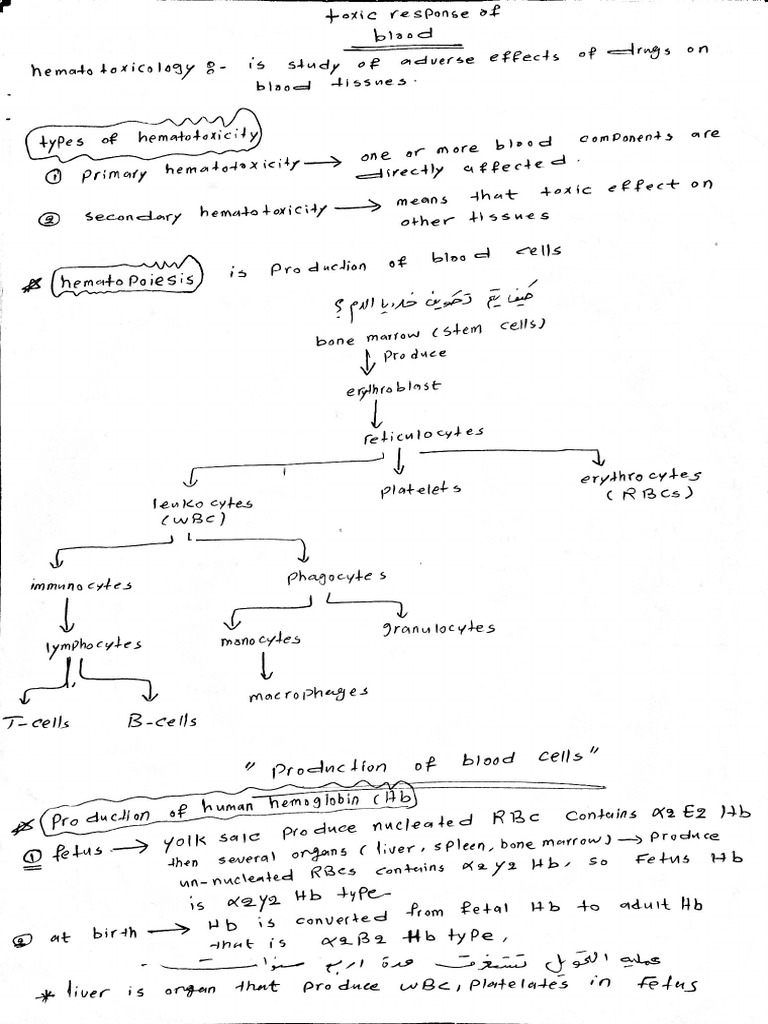 toxic response of
blood
hematotoxicology :- is study of adverse effects of drugs on
blood tissues.
types of hematotoxicity
① primary hematotoxicity → one or more blood components are
directly affected.
② secondary hematotoxicity → means that toxic effect on
other tissues
* hematopoiesis is production of blood cells
كيف يتم تكوين خلايا الدم ؟
bone marrow (stem cells)
↓ produce
erythroblast
reticulocytes
leukocytes platelets erythrocytes
(WBC) (RBCs)
immunocytes phagocytes
lymphocytes monocytes granulocytes
macrophages
T-cells B-cells
" production of blood cells "
* production of human hemoglobin (Hb)
① fetus → yolk salc produce nucleated RBC contains α2E2 Hb
then several organs (liver, spleen, bone marrow) → produce
un-nucleated RBCs contains α2γ2 Hb, so Fetus Hb
is α2γ2 Hb type
② at birth → Hb is converted from fetal Hb to adult Hb
that is α2B2 Hb type,
عملية التحول تستغرق مدة اربع سنوات
* liver is organ that produce WBC, platelates in fetus